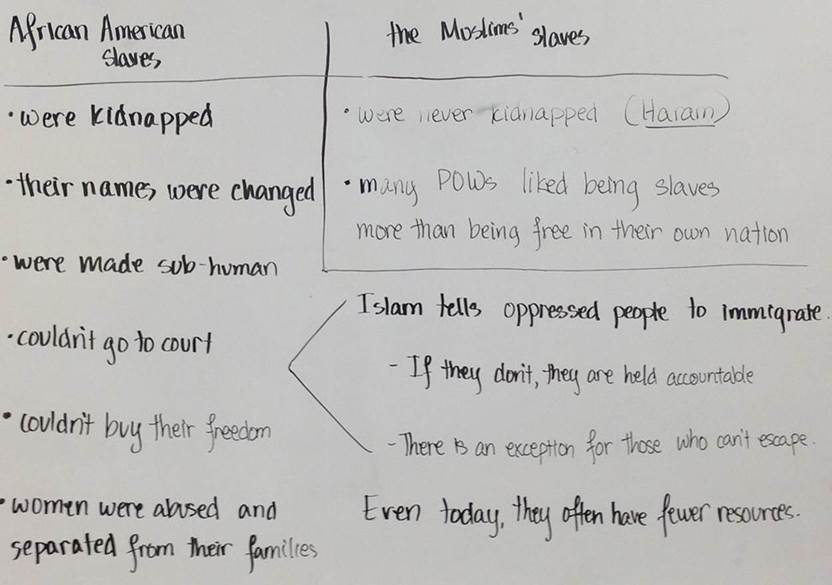 African American
slaves
• were kidnapped
• their names were changed
• were made sub-human
• couldn't go to court
• couldn't buy their freedom
• women were abused and
separated from their families
the Muslims' slaves
• were never kidnapped (Haram)
• many POWs liked being slaves
more than being free in their own nation
Islam tells oppressed people to immigrate.
- If they don't, they are held accountable
- There is an exception for those who can't escape.
Even today, they often have fewer resources.